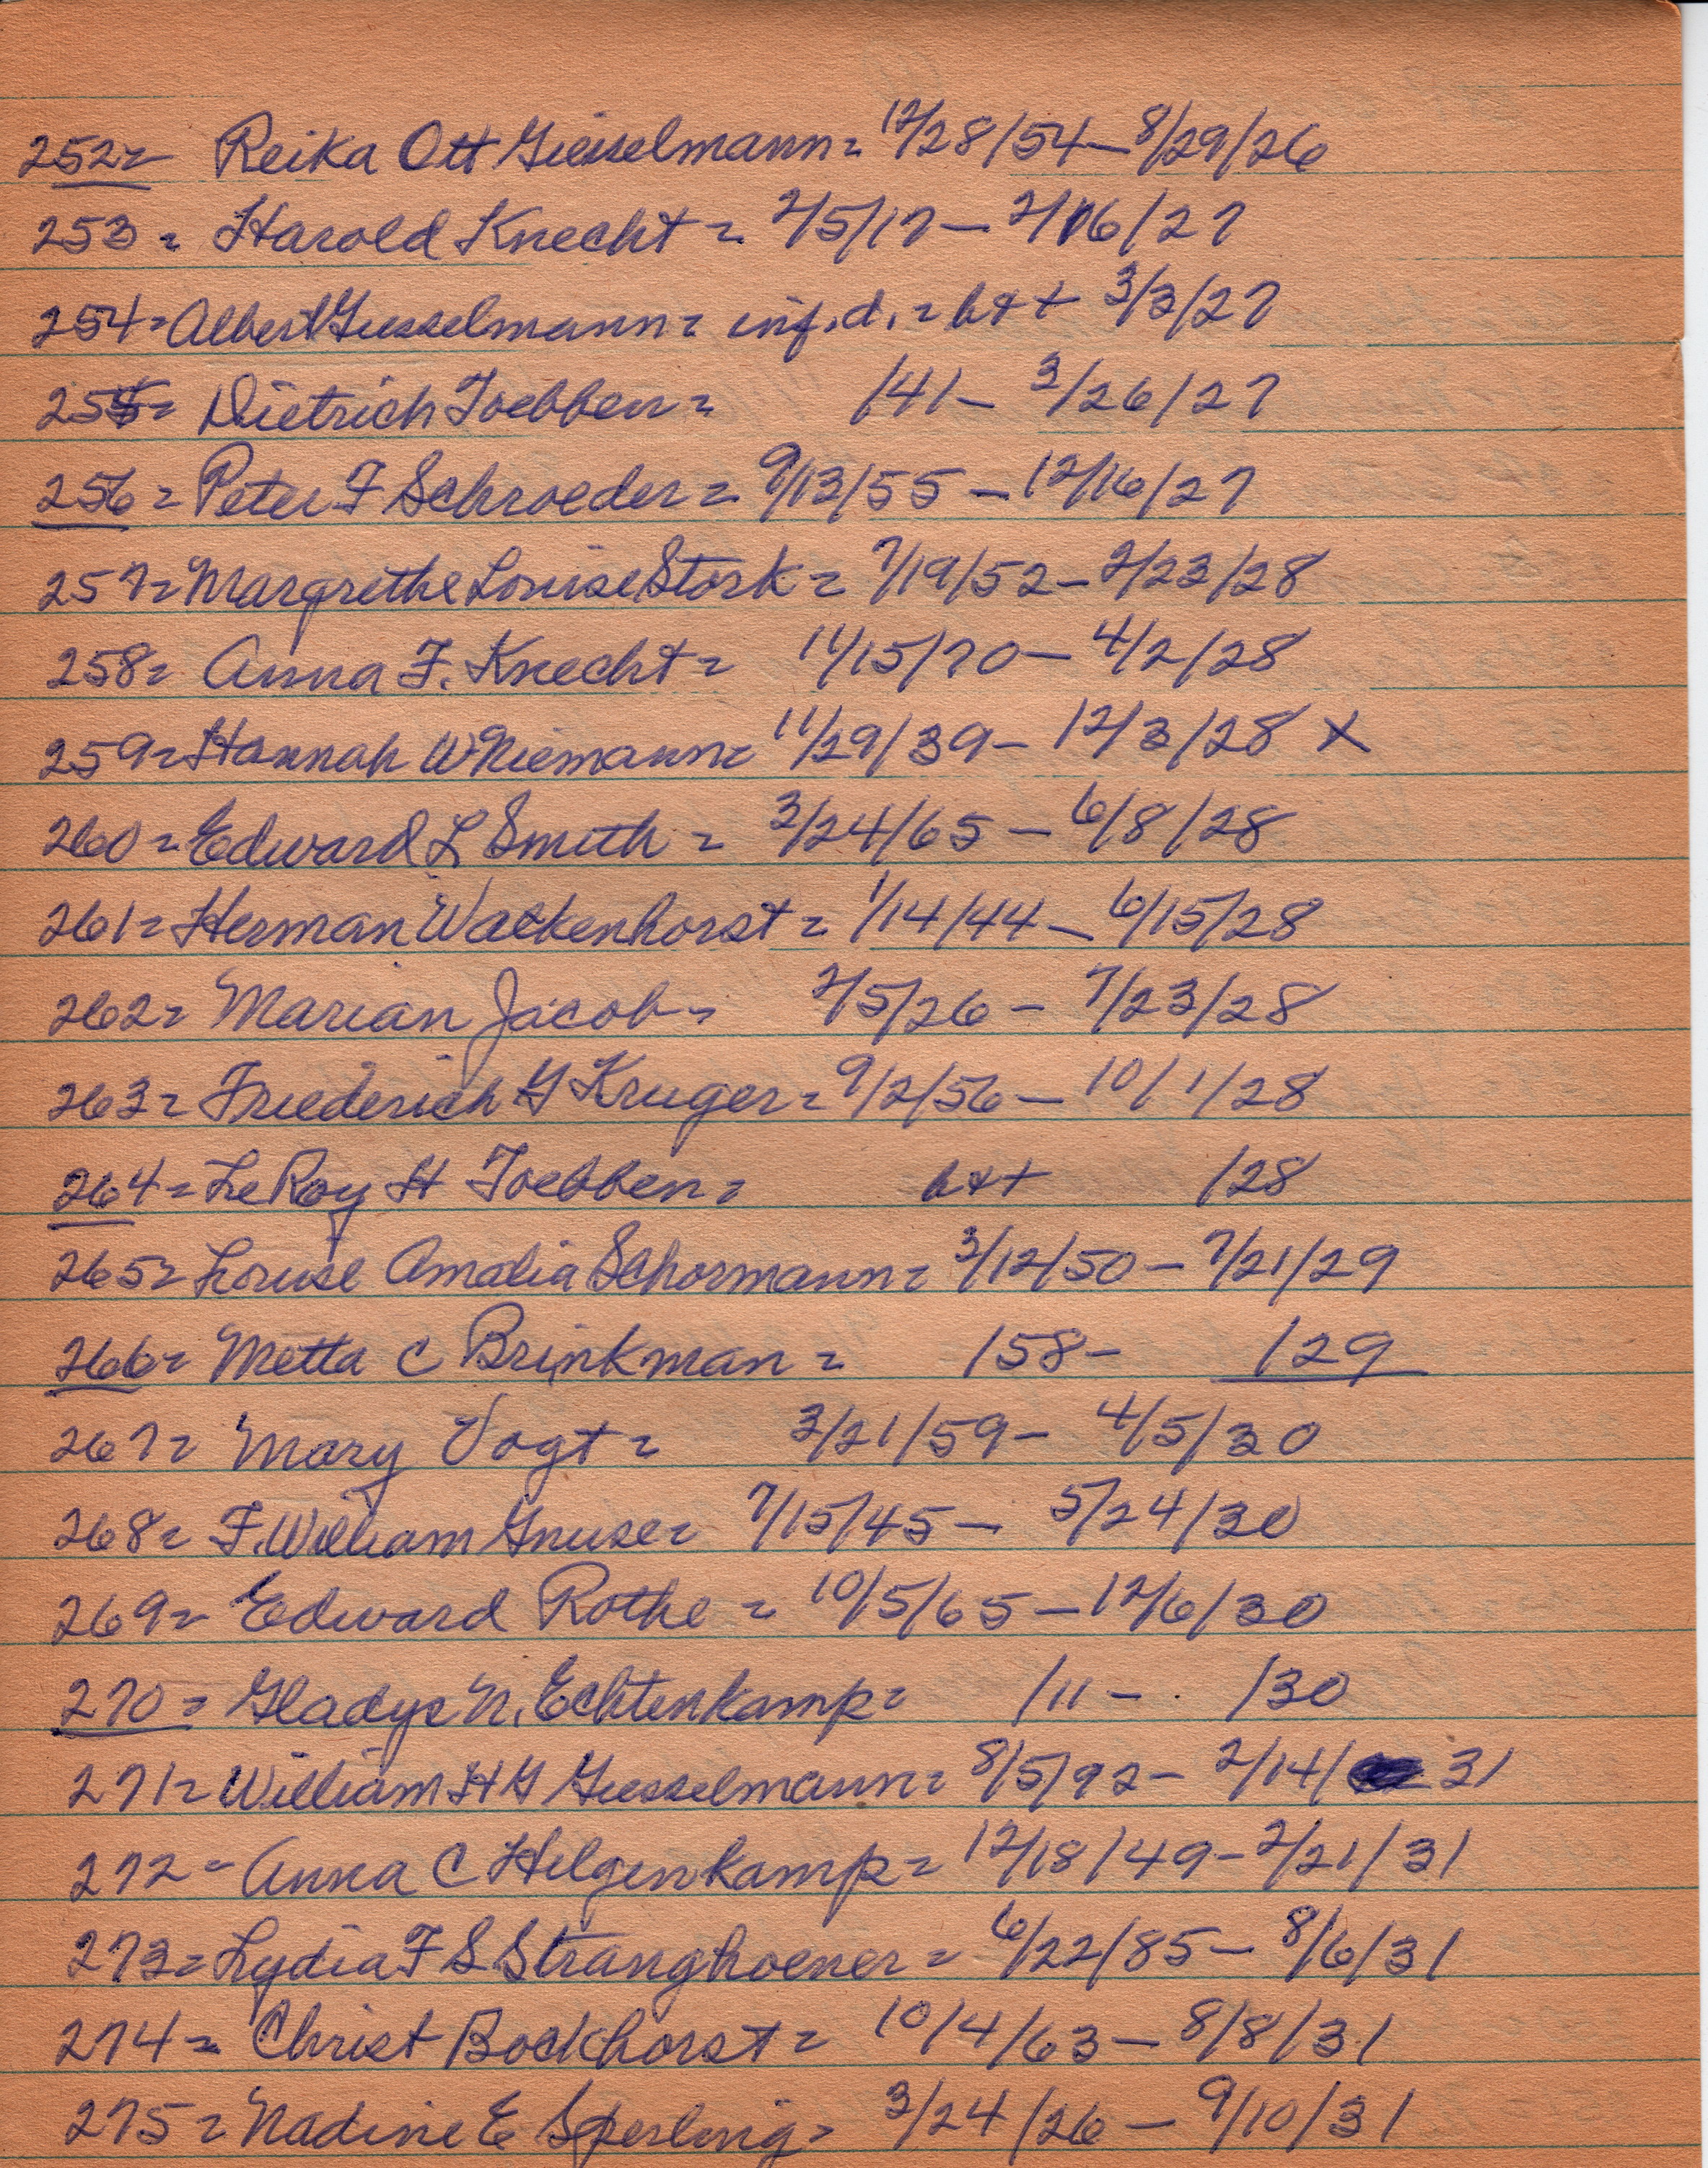 252= Reika Ott Giesselmann= 12/28/54 - 8/29/26
253 = Harold Knecht = 2/5/17 - 2/16/27
254 = Albert Giesselmann = inf. d. = b & + 3/3/27
255= Dietrich Toebben = /41 - 3/26/27
256 = Peter F Schroeder = 9/13/55 - 12/16/27
257= Margrethe Louise Stork = 7/19/52 - 2/23/28
258= Anna F. Knecht = 11/15/70 - 4/2/28
259= Hannah W Niemann= 11/29/39 - 12/3/28 X
260 = Edward L Smith = 3/24/65 - 6/8/28
261= Herman Walkenhorst = 1/14/44 - 6/15/28
262= Marian Jacob = 2/5/26 - 7/23/28
263= Friederich G Kruger = 9/2/56 - 10/1/28
264= LeRoy H Toebben = b & + /28
265= Louise Amalia Schormann = 3/12/50 - 7/21/29
266= Metta C Brinkman = /58 - /29
267= Mary Vogt = 3/21/59 - 4/5/30
268= F. William Gnuse = 7/15/45 - 5/24/30
269= Edward Rothe = 10/5/65 - 12/6/30
270= Gladys N. Echtenkamp= /11 - /30
271= William H G Giesselmann = 8/5/92 - 2/14/31
272= Anna C Hilgenkamp = 12/18/49 - 2/21/31
273= Lydia F S Stranghoener = 6/22/85 - 8/6/31
274= Christ Bockhorst = 10/4/63 - 8/8/31
275= Nadine E Sperling = 3/24/26 - 9/10/31